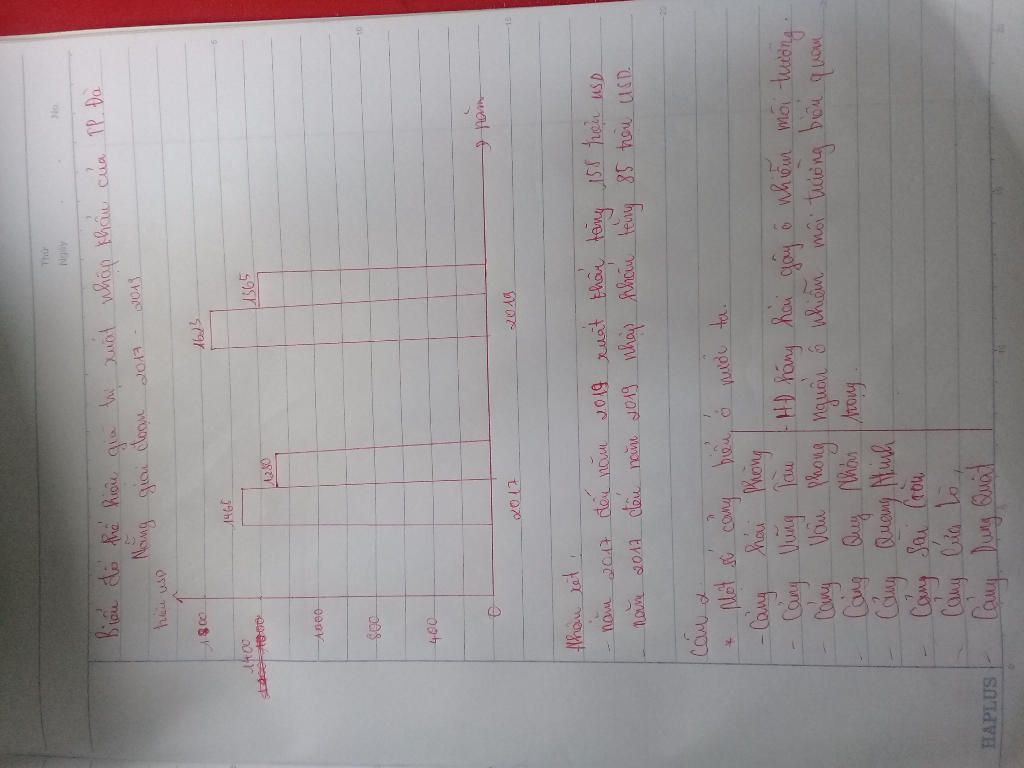 Thứ
Ngày
No.
Biểu đồ thể hiện giá trị xuất nhập khẩu của TP. Đà
Nẵng giai đoạn 2017 - 2019
triệu USD
1800
1400
1000
800
400
0
1466
1280
1623
1365
2017
2019
năm
Nhận xét
- năm 2017 đến năm 2019 xuất khẩu tăng 155 triệu USD
- năm 2017 đến năm 2019 nhập khẩu tăng 85 triệu USD.
Câu 2
* Một số cảng biển ở nước ta.
- Cảng Hải Phòng
- Cảng Vũng Tàu
- Cảng Vân Phong
- Cảng Quy Nhơn
- Cảng Quảng Ninh
- Cảng Sài Gòn
- Cảng Cửa Lò
- Cảng Dung Quất
- HĐ hàng hải gây ô nhiễm môi trường.
nguồn ô nhiễm môi trường biển quan
trọng.
HAPLUS